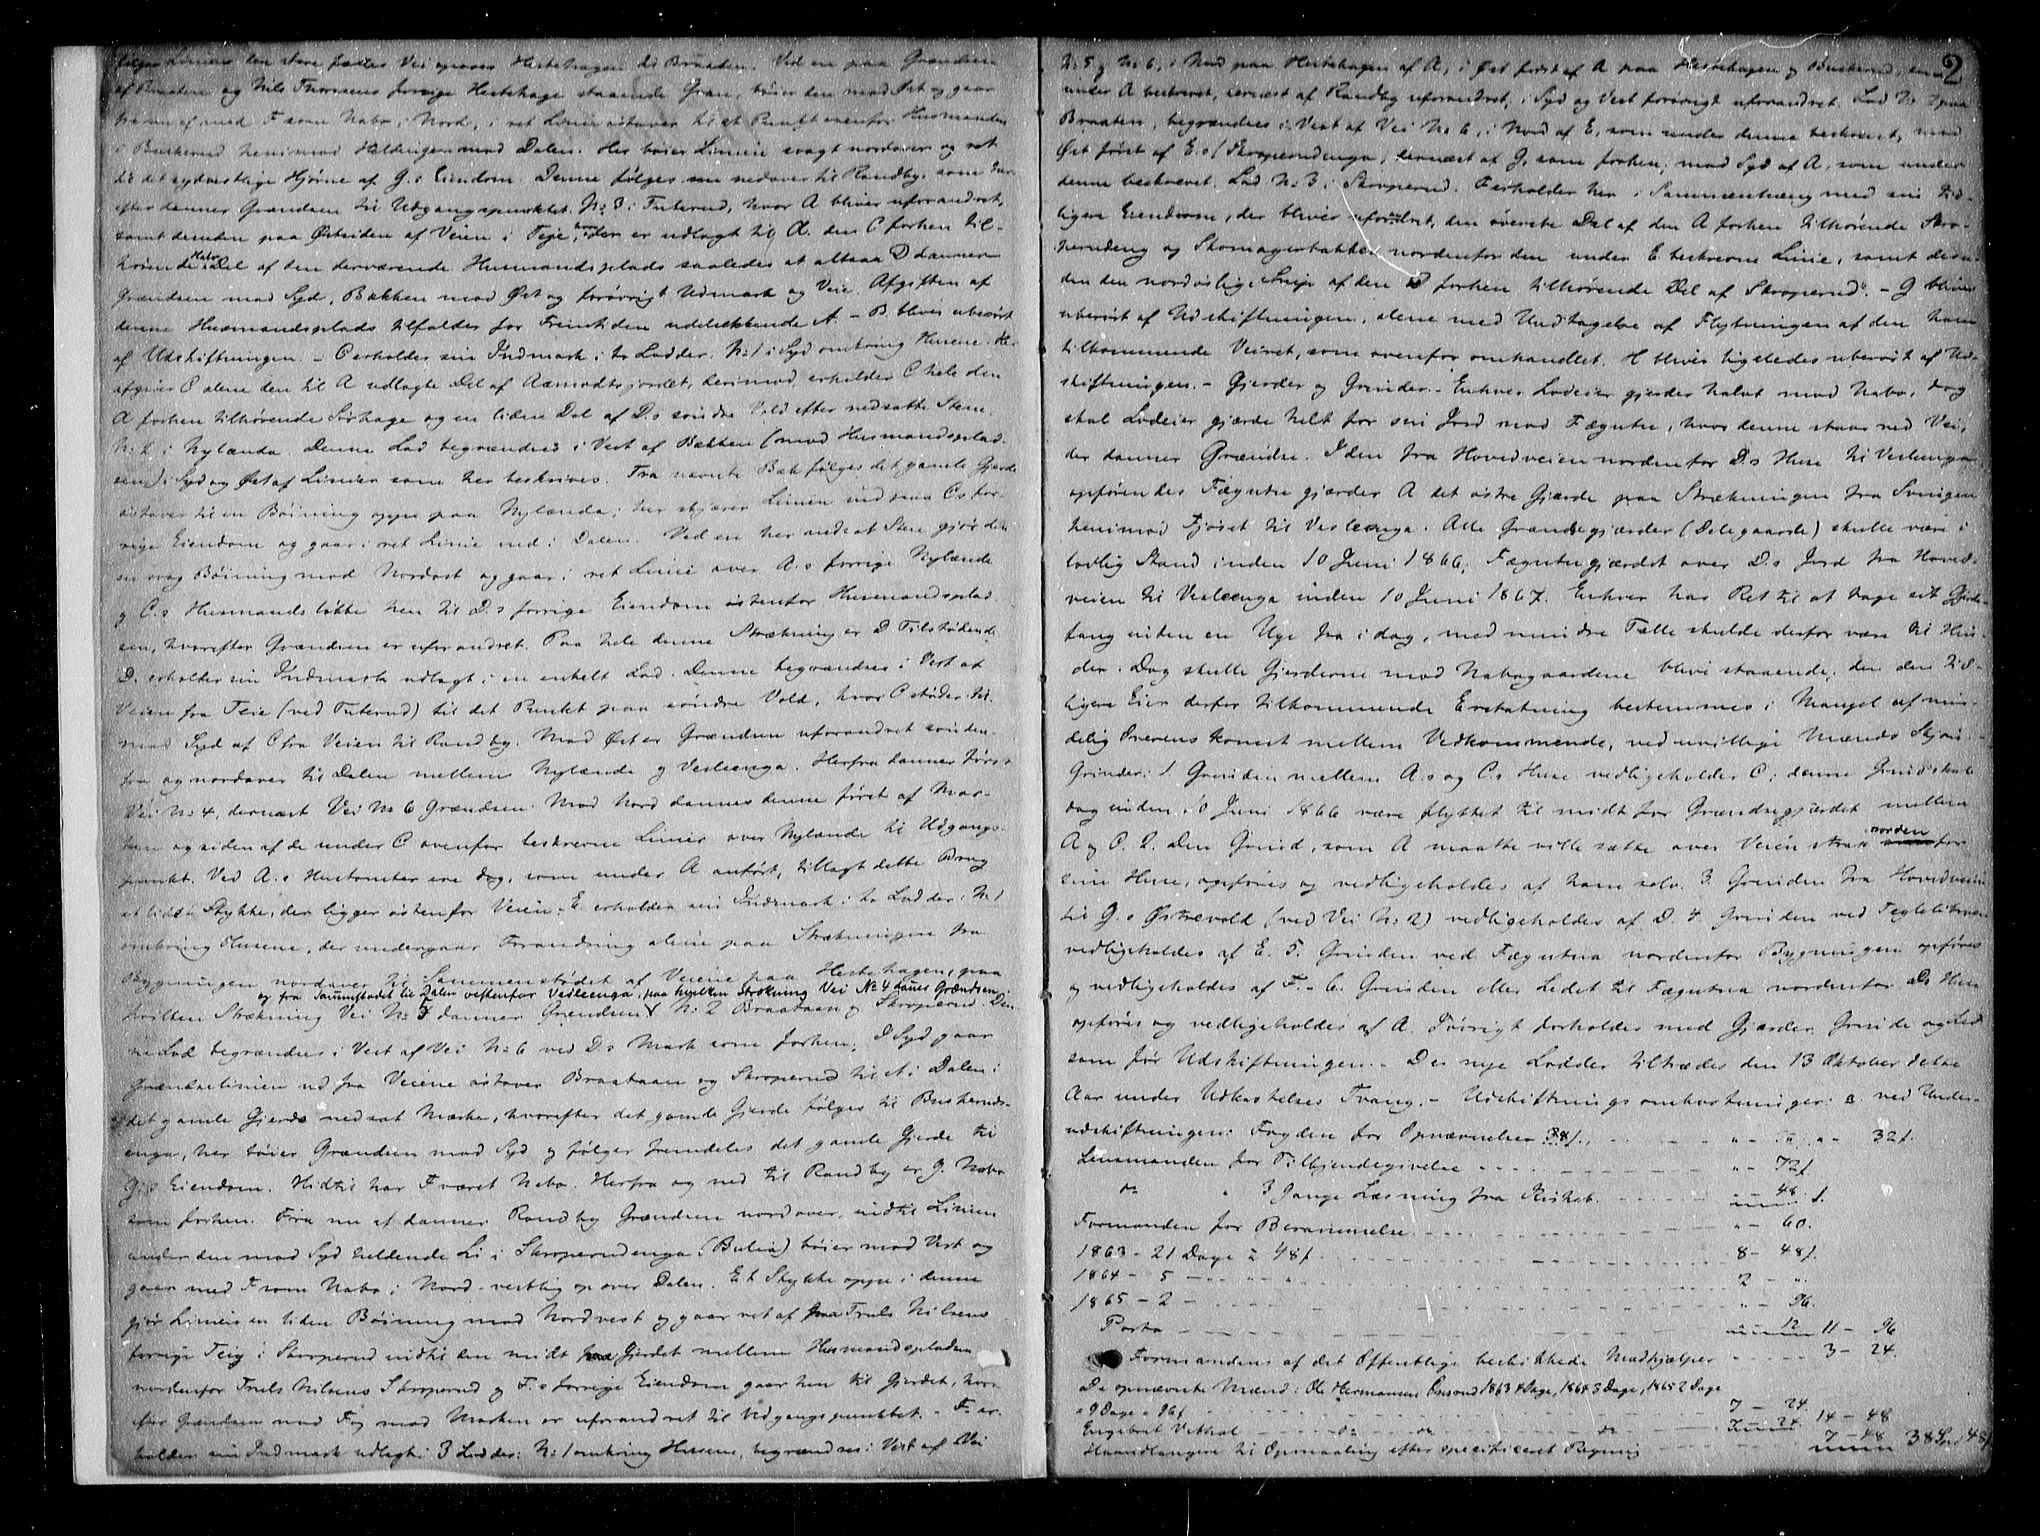 følger Linien den store fældes Vei igjennem Hestehagen til Braaten. Ved en paa Grændsen
af Braaten og Nils Thorsens forrige Hestehage staaende Gran, bøier den mod Øst og gaar
herom af med F som Nabo i Nord, i ret Linie østover til et Punkt ovenfor Husmanden
i Buskerud henimod Heldingen mod Dalen. Her bøier Linien svagt nordover og ret
til det sydvestlige Hjørne af G.s Eiendom. Denne følges nu nedover til Randby, som her-
efter danner Grændsen til Udgangspunktet. No 3 i Tuterud, hvor A bliver uforandret,
samt desuden paa Østsiden af Veien i Teie, hvor der er udlagt til A. den C forhen til-
hørende Halv Del af den derværende Husmandsplads saaledes at altsaa D danner
Grændsen mod Syd, Bækken mod Øst og forøvrigt Udmark og Veie. Afgiften af
denne Husmandsplads tilfalder for Fremtiden udelukkende A. - B bliver uberørt
af Udskiftningen. - C erholder sin Indmark i to Lodder. No 1 i Syd omkring Husene. Her
afgiver C alene den til A udlagte Del af Aamodtsjordet, derimod erholder C hele den
A forhen tilhørende Sørhage og en liden Del af D.s søndre Vold efter nedsatte Stene.
No 2 i Nylænda. Denne Lod begrændses i Vest af Bækken (mod Husmandsplad-
sen) i Syd og Øst af Linier som her beskrives. Fra nævnte Bæk følges det gamle Gjerde
østover til en Bøining oppe paa Nylænda, her skjærer Linien ind paa C.s for-
rige Eiendom og gaar i ret Linie ned i Dalen. Ved en her nedsat Sten gjør den
en svag Bøining mod Nordost og gaar i ret Linie over A.s forrige Nylænde
og C.s Husmands løkke hen til D.s forrige Eiendom østenfor Husmandsplad-
sen, hvorefter Grændsen er uforandret. Paa hele denne Strækning er D Tilstødende.
D. erholder sin Indmark udlagt i en enkelt Lod. Denne begrændses i Vest af
Veien fra Teie (ved Tuterud) til det Punkt paa søndre Vold, hvor C støder til.
mod Syd af C fra Veien til Randby. Mod Øst er Grændsen uforandret sønden-
fra og nordover til Dalen mellem Nylænde og Vesleenga. Herfra danner først
Vei No 4, dernæst Vei No 6 Grændsen. Mod Nord dannes denne først af Mar-
ken og siden af de under C ovenfor beskrevne Linier over Nylænde til Udgangs-
punkt. Ved A.s Hustomter er dog, som under A anført, tillagt dette Brug
et lidet Stykke, der ligger østenfor Veien. E. erholder sin Indmark i to Lodder: No 1
omkring Husene, der undergaar Forandring alene paa Strækningen fra
Bygningen nordover til Sammenstødet af Veiene paa Hestehagen, paa
og fra Sammstødet til Dalen vestenfor Vedleenga, paa hvilken Strækning Vei No 4 danner Grændsen.
hvilken Strækning Vei No 5 danner Grændsen No 2 Braataan og Skroperud. Den-
ne Lod begrændses i Vest af Vei No 6 ved D.s Mark som forhen; I Syd gaar
Grændselinien ud fra Veiene østover Braataan og Skroperud til et i Dalen i
det gamle Gjerde nedsat Mærke, hvorefter det gamle Gjerde følges til Buskeruds-
enga, her bøier Grændsen mod Syd og følger fremdeles det gamle Gjerde til
G.s Eiendom. Hidtil har F været Nabo. Herfra og ned til Randby er G. Nabo
som forhen. Fra nu af danner Randby Grændsen nordover, indtil Linien
under den mod Syd heldende Li i Skroperudenga (Bulia) bøier mod Vest og
gaar med F som Nabo i Nord-vestlig op over Dalen. Et Stykke oppe i denne
gjør Linien en liden Bøining mod Nordvest og gaar ret af Truls Nilsens
forrige Teig i Skroperud indtil den midt paa Gjerdet mellem Husmandspladsen
nordenfor Truls Nilsens Skroperud og F.s forrige Eiendom gaar hen til Gjerdet, hvor-
efter Grændsen mod F og mod Marken er uforandret til Udgangspunktet. - F. er-
holder sin Indmark udlagt i 3 Lodder: No 1 omkring Husene, begrændses i Vest af Vei
2
No 5 og No 6, i Nord paa Hestehagen af A, i Øst først af A paa Hestehagen og Buskerud, som
under A beskrevet, dernæst af Randby uforandret, i Syd og Vest forøvrigt uforandret. Lod No 2 paa
Braaten, begrændses i Vest af Vei No 6, i Nord af E, som under denne beskrevet, mod
Øst først af E.s Skroperudenga, dernæst af G. som forhen, mod Syd af A, som under
denne beskrevet. Lod No 3 i Skroperud. F erholder her i Sammenhæng med sin tid-
ligere Eiendom, der bliver uforandret, den øverste Del af den A forhen tilhørende Skro-
perudeng og Skomagerbakken nordenfor den under E beskrevne Linie, samt desu-
den den nordøstlige Snip af den D forhen tilhørende Del af Skroperud. - G bliver
uberørt af Udskiftningen, alene med Undtagelse af Flytningen af den ham
tilkommende Veiret, som ovenfor omhandlet. H bliver ligeledes uberørt af Ud-
skiftningen. - Gjerder og Grinder. - Enhver Lodeier gjerder halvt mod Nabo, dog
skal Lodeier gjærde helt for sin Jord mod Fægutu, hvor denne staar ved Vei,
der danner Grændse. I den fra Hovedveien nordenfor D.s Huse til Vesleenga
opførendes Fægutu gjærder A det østre Gjærde paa Strækningen fra Svingen
henimod Fjøset til Vesleenga. Alle Grændegjærder (Delegaarde) skulle være i
lovlig Stand inden 10 Juni 1866, Fægutugjærdet over D.s Jord fra Hoved-
veien til Vesleenga inden 10 Juni 1867. Enhver har Ret til at tage sit Gjerde-
fang inden en Uge fra i dag, med mindre Fælle skulde derfor være til Hin-
der. Dog skulle Gjerderne mod Nabogaardene blive staaende, den den tid-
ligere Eier derfor tilkommende Erstatning bestemmes i Mangel af min-
delig Overenskomst mellem Vedkommende, ved uvillige Mænds Skjøn. -
Grinder: 1. Grinden mellem A.s og C.s Huse vedligeholder C; denne Grind skal
dog inden 10 Juni 1866 være flyttet til midt for Grændsegjærdet mellem
A og C. 2. Den Grind, som A maatte ville sætte over Veien strax norden for
sine Huse, opføres og vedligeholdes af ham selv. 3. Grinden fra Hovedveien
til G.s Østrevold (ved Vei No 2) vedligeholdes af D. 4. Grinden ved Teglebakken
vedligeholdes af E. 5. Grinden ved Fægutua nordenfor Bygningen opføres
og vedligeholdes af F. - 6. Grinden eller Ledet til Fægutua nordenfor D.s Huse
opføres og vedligeholdes af A. Forøvrigt forholdes med Gjærder, Grinde og Led
som før Udskiftningen. - De nye Lodder tiltrædes den 13 Oktober dette
Aar under Udkastelses Tvang. - Udskiftnings omkostninger: a ved Under-
udskiftningen: Fogden for Opnævnelse 32f. " - " " - 32f.
Lensmanden for Tilkjendegivelse " - 72f
do " 3 Gange Læsning fra Kirken. " - 48 f.
Formanden for Berammelse " - 60.
1863 - 21 Dage à 48f. 8 - 48f.
1864 - 5 - " " " 2 - ".
1865 - 2 - " - 96.
Porto 12 11 - 96
Formandens af det Offentlige beskikkede Medhjælper 3 - 24.
De opnævnte Mænd: Ole Hermansen Onsrud 1863 4 Dage, 1864 3 Dage, 1865 2 Dage
= 9 Dage à 96f 7 - 24.
Engebret Vethal do do do 7 - 24 14 - 48
Haandlangere til Opmaaling efter specificeret Regning 7 - 48 38 Spd 48f